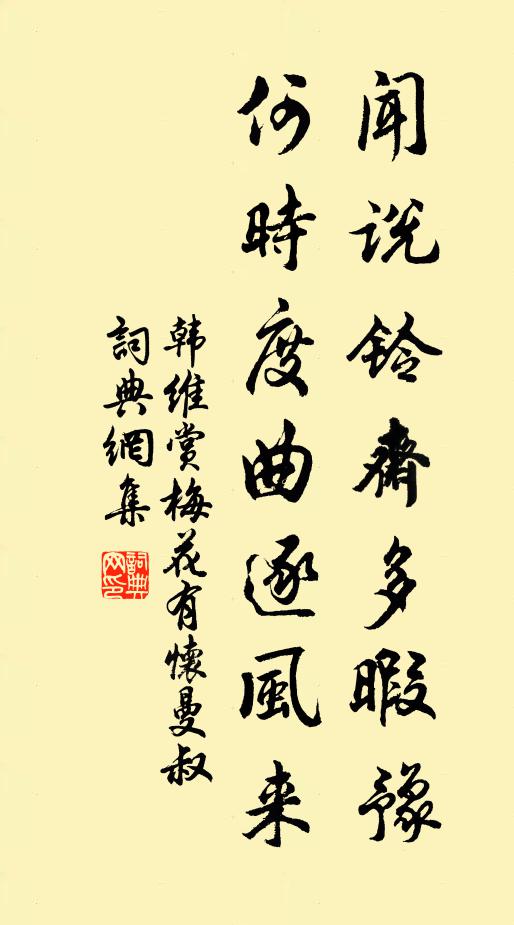 闻说铃齋多暇豫
何時度曲逐風来
韩维赏梅花有懷曼叔
詞典網集
詞典
网印